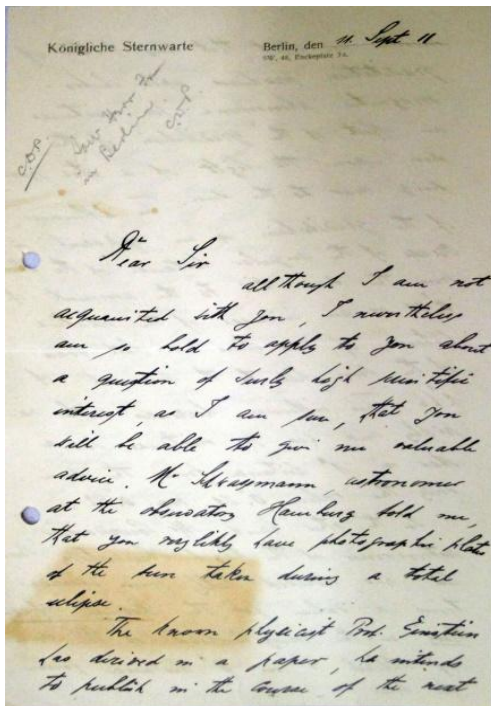 Königliche Sternwarte
Berlin, den 11. Sept 11
SW. 48, Enckeplatz 3A.
C.D.P.
I saw Herr Fr
in Berlin
C.D.P
Dear Sir
although I am not
acquainted with you, I nevertheless
am so bold to apply to you about
a question of surly high scientific
interest, as I am sure, that you
will be able to give me valuable
advice. Mr Schwassmann, astronomer
at the observatory Hamburg told me,
that you have photographic plates
of the sun taken during a total
eclipse.
The known physicist Prof. Einstein
has derived in a paper, he intends
to publish in the course of the next